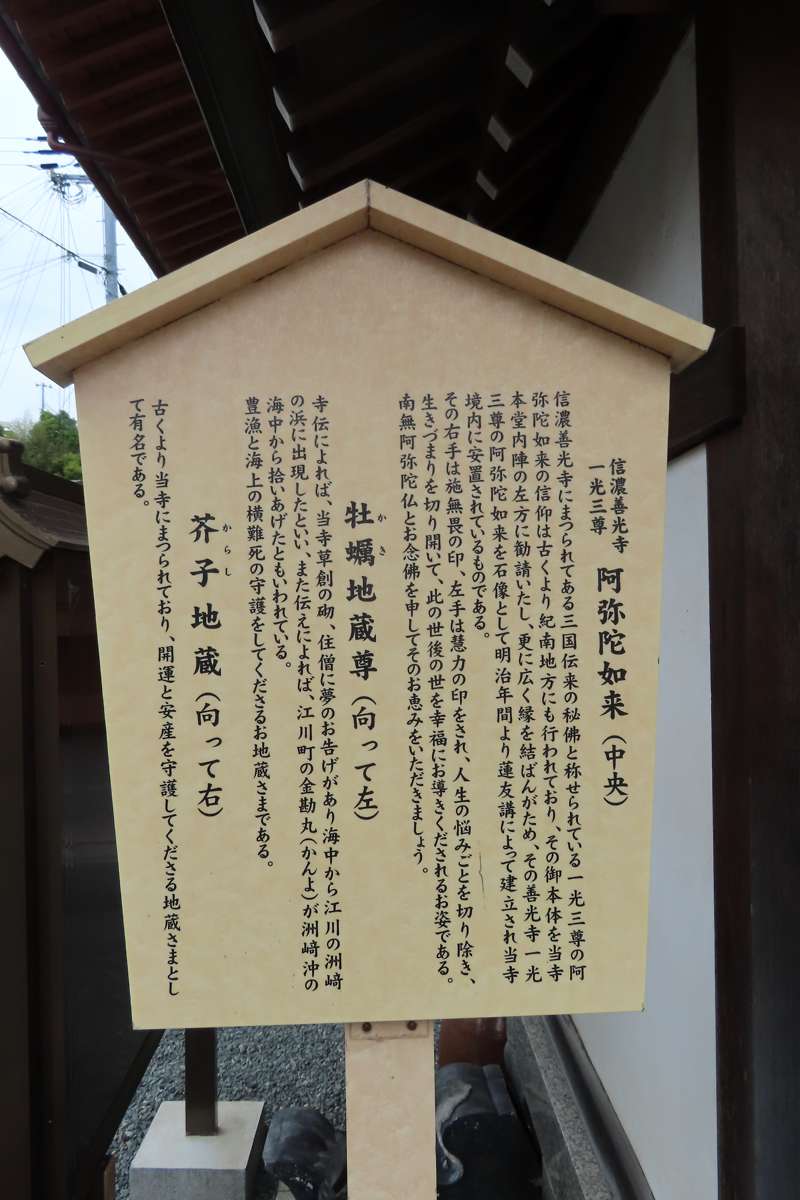 信濃善光寺
一光三尊
阿弥陀如来(中央)
信濃善光寺にまつられてある三国伝来の秘佛と称せられている一光三尊の阿
弥陀如来の信仰は古くより紀南地方にも行われており、その御本体を当寺
本堂内陣の左方に勧請いたし、更に広く縁を結ばんがため、その善光寺一光
三尊の阿弥陀如来を石像として明治年間より蓮友講によって建立され当寺
境内に安置されているものである。
その右手は施無畏の印、左手は慧力の印をされ、人生の悩みごとを切り除き、
生きづまりを切り開いて、此の世後の世を幸福にお導きくだされるお姿である。
南無阿弥陀仏とお念佛を申してそのお恵みをいただきましょう。
かき
牡蠣地蔵尊(向って左)
寺伝によれば、当寺草創の砌、住僧に夢のお告げがあり海中から江川の洲﨑
の浜に出現したといい、また伝えによれば、江川町の金勘丸(かんよ)が洲﨑沖の
海中から拾いあげたともいわれている。
豊漁と海上の横難死の守護をしてくださるお地蔵さまである。
からし
芥子地蔵(向って右)
古くより当寺にまつられており、開運と安産を守護してくださる地蔵さまとし
て有名である。